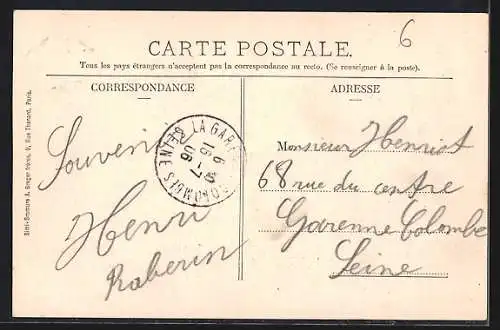 6
CARTE POSTALE.
Tous les pays étrangers n'acceptent pas la correspondance au recto. (Se renseigner à la poste).
CORRESPONDANCE
ADRESSE
Souvenir
Henri
Raberin
LA GARENNE-COLOMBES
SEINE
Monsieur Henriot
68 rue du centre
Garenne Colombe
Seine
A. Breger frères, 9, Rue Thénard, Paris.